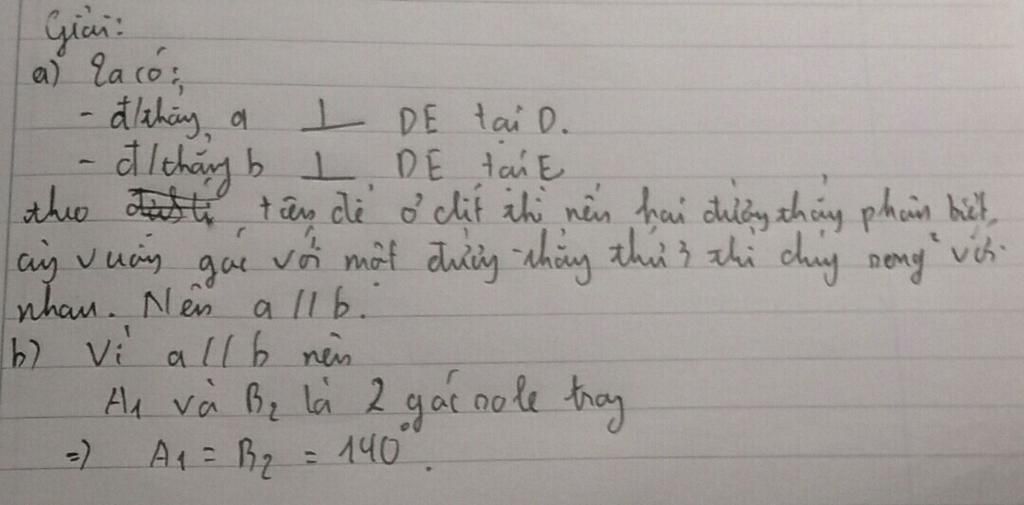 Giải:
a) Ta có:
- đ/thẳng a ⊥ DE tại D.
- đ/thẳng b ⊥ DE tại E
theo tiên đề ơ clit thì nếu hai đường thẳng phân biệt,
cùng vuông góc với một đường thẳng thứ 3 thì chúng song² với
nhau. Nên a // b.
b) Vì a // b nên
A₁ và B₂ là 2 góc sole trong
=> A₁ = B₂ = 140°.